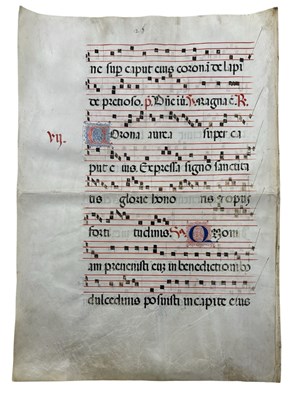 ne sup caput eius coronā de lapi
de precioso. p. Dñe iii. V. magna ē. R.
vij. Corona aurea super ca
put e ius. Expressa signo sanctita
tis glorie hono ris 7 opus
forti tudinis. V. Quoni
am preuenisti eū in benedictionibȝ
dulcedinis posuisti in capite eius